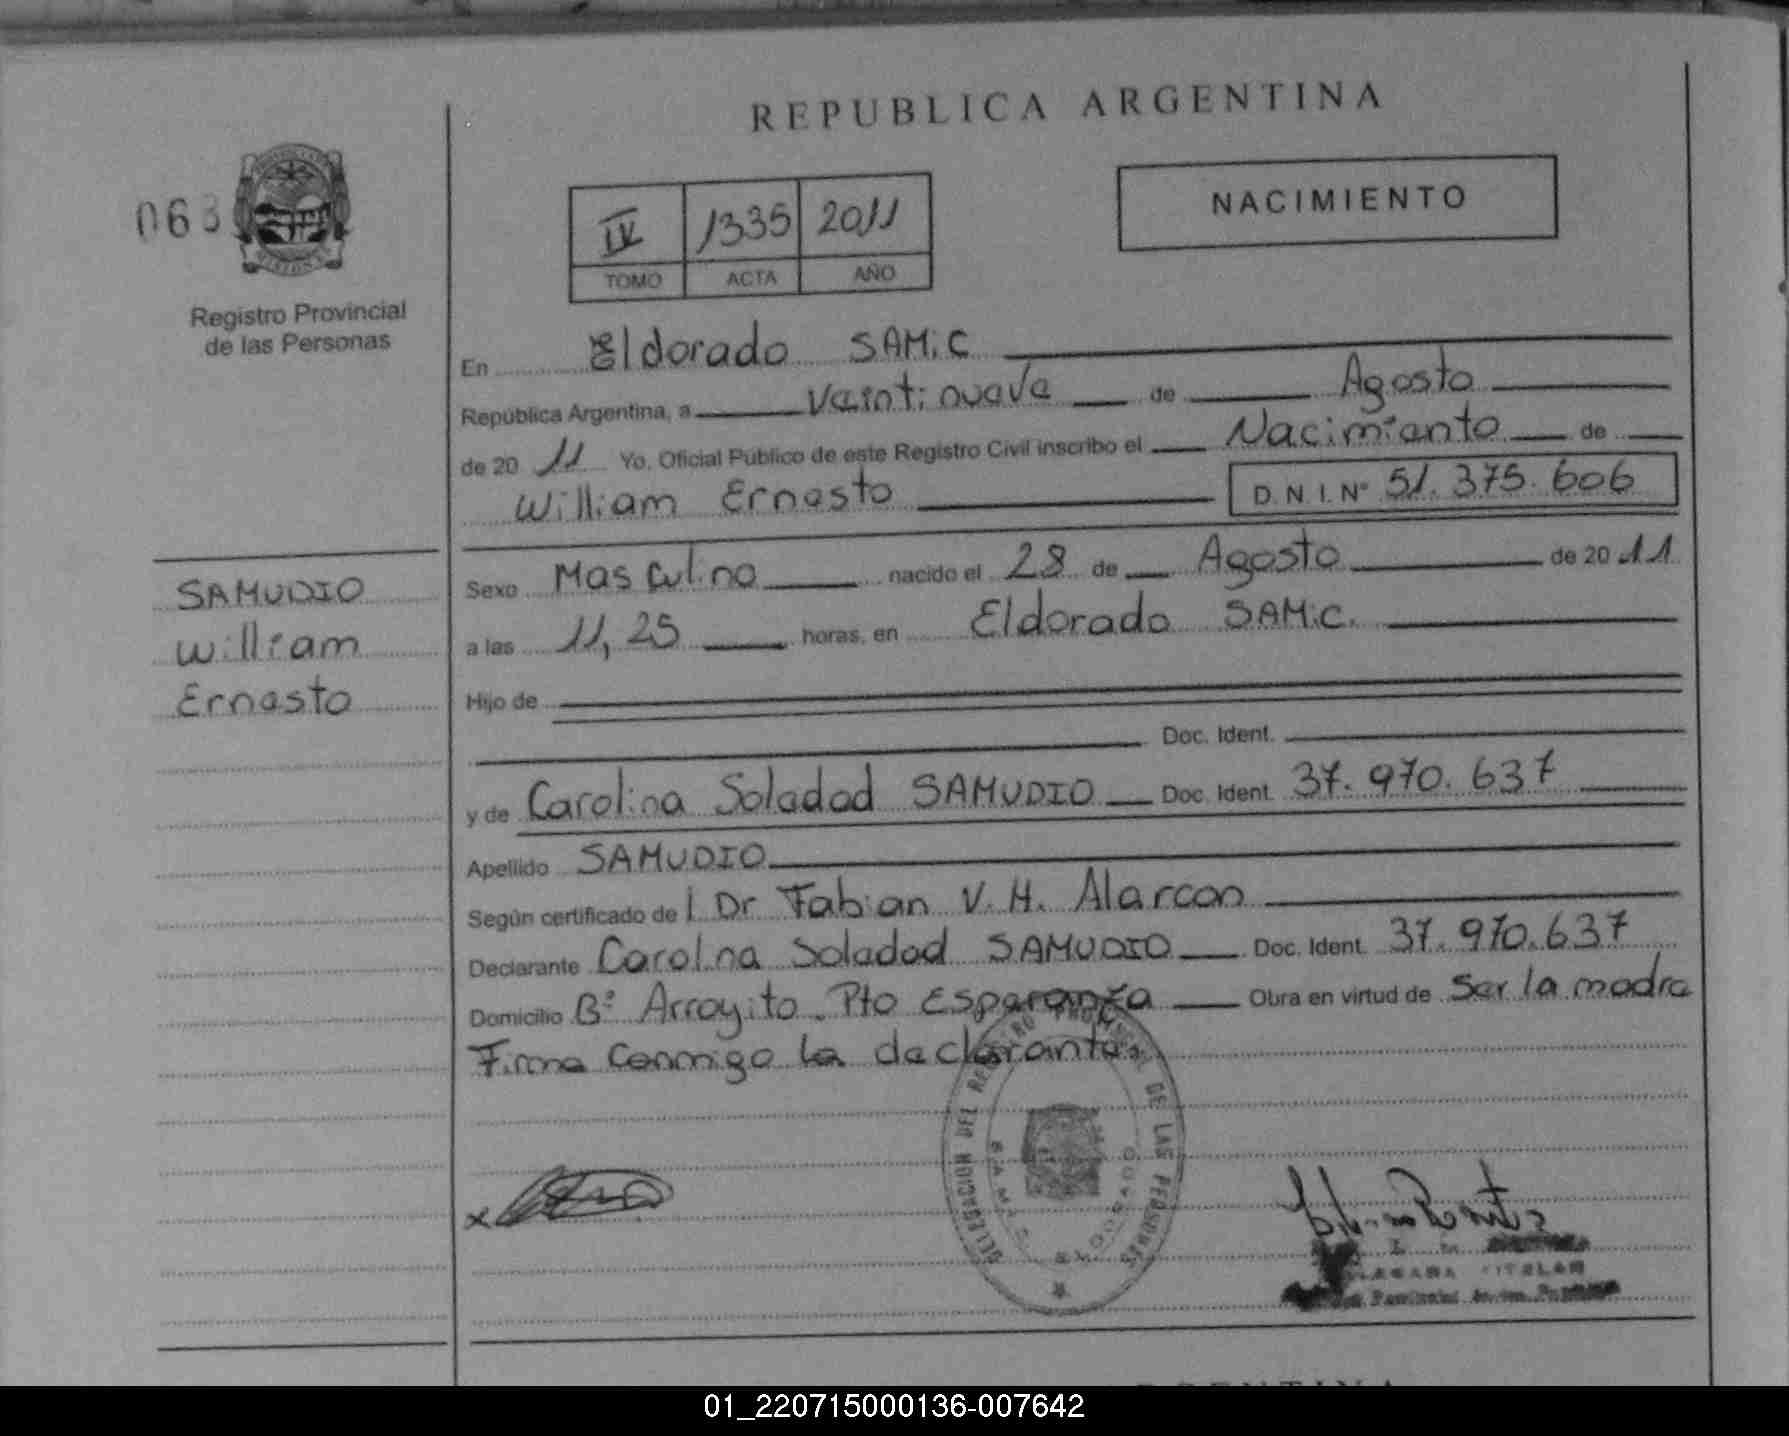 REPUBLICA ARGENTINA
NACIMIENTO
063
IV 1335 2011
TOMO ACTA AÑO
Registro Provincial
de las Personas
En Eldorado SAMiC
República Argentina, a Veintinueve de Agosto
de 20 11 Yo, Oficial Público de este Registro Civil inscribo el Nacimiento de
William Ernesto D.N.I.Nº 51.375.606
SAMUDIO
William
Ernesto
Sexo Masculino nacido el 28 de Agosto de 20 11
a las 11,25 horas, en Eldorado SAMiC.
Hijo de
Doc. Ident.
y de Carolina Soledad SAMUDIO Doc. Ident. 37.970.637
Apellido SAMUDIO
Según certificado de l Dr Fabian V. H. Alarcon
Declarante Carolina Soledad SAMUDIO Doc. Ident. 37.970.637
Domicilio Bº Arroyito. Pto Esperanza Obra en virtud de Ser la madre
Firma Conmigo la declarante.
DELEGACION DEL REGISTRO PROVINCIAL DE LAS PERSONAS
ELDORADO
x
01_220715000136-007642